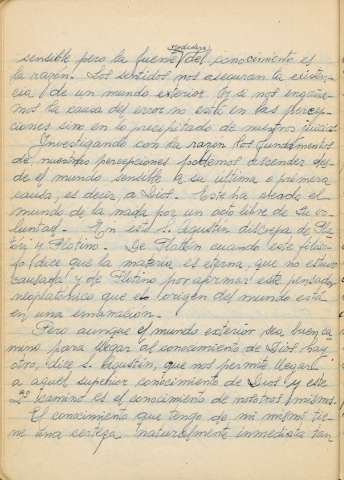 verdadera
sensible pero la fuente del conocimiento es
la razón. Los sentidos nos aseguran la existen-
cia de un mundo exterior. Y si nos engaña-
mos la causa del error no está en las percep-
ciones sino en lo precipitado de nuestros juicios
Investigando con la razón los fundamentos
de nuestras percepciones podemos ascender des-
de el mundo sensible a su última o primera
causa, es decir, a Dios. Este ha sacado el
mundo de la nada por un acto libre de su vo-
luntad. En esto S. Agustín discrepa de Pla-
tón y Plotino. De Platón cuando este filóso-
fo dice que la materia es eterna, que no estuvo
causada y de Plotino por afirmar este pensador
neoplatónico que el origen del mundo está
en una emanación.
Pero aunque el mundo exterior sea buen ca-
mino para llegar al conocimiento de Dios hay
otro, dice S. Agustín, que nos permite llegar
a aquel superior conocimiento de Dios y este
2º camino es el conocimiento de nosotros mismos.
El conocimiento que tengo de mi mismo tie-
ne una certeza naturalmente inmediata tan